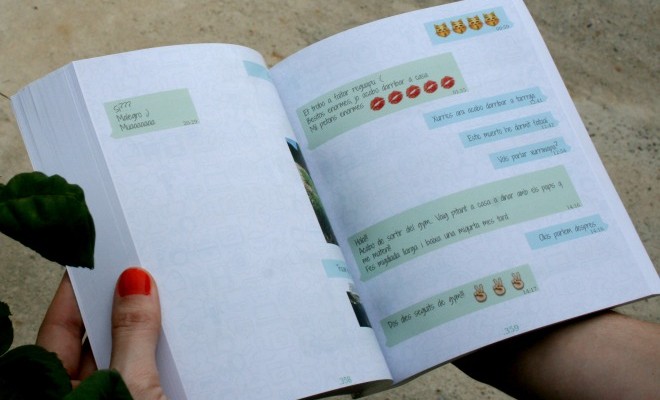 Si???
Melegro ;)
Muaaaaaaa
20:23
358
Et trobo a faltar reguapu :(
Besitos enormes, jo acabo darribar a casa
Mil petons enormes
Xurrus ara acabo darribar a tarrega
Este muerto he dormit fatal
Vols parlar xurriwapu?
Hola!!
Acabo de sortir del gym. Vaig pitant a casa a dinar amb els paps q
me maten!!
Fes migdiada llarga i baixa una miqueta mes tard
14:16
Oks parlem despres!
14:16
Dos dies seguits de gym!!
14:17
359